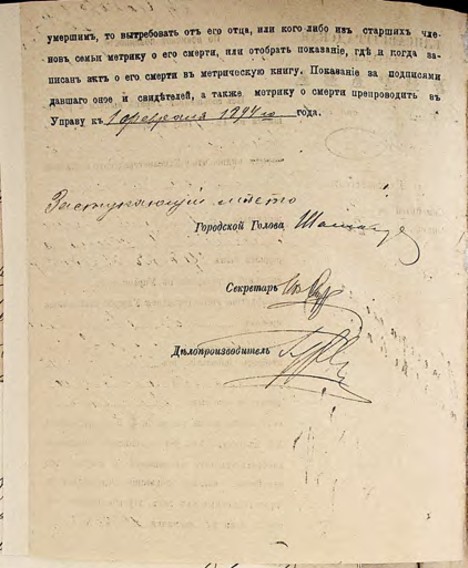 умершимъ, то вытребовать отъ его отца, или кого либо изъ старшихъ чле-
новъ семьи метрику о его смерти, или отобрать показаніе, гдѣ и когда за-
писанъ актъ о его смерти въ метрическую книгу. Показаніе за подписями
давшаго оное и свидѣтелей, а также метрику о смерти препроводить въ
Управу къ 1 февраля 1894 го года.
Заступающій мѣсто
Городской Голова
Секретарь
Дѣлопроизводитель